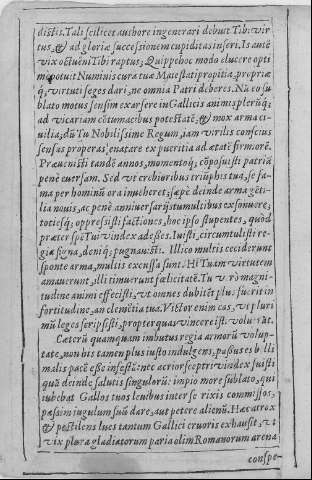 dictis. Tali scilicet authore ingenerari debuit Tibi vir-
tus, & ad gloriæ successionem cupiditas inseri. Is autē
vix octuēni Tibi raptus; Quippe hoc modo elucere opti
mè potuit Numinis cura tuæ Maiestati propitia, propriæ
q; virtuti seges dari, ne omnia Patri deberes. Nā eo su
blato motus sensim exarsere in Gallicis animis plerūq;
ad vicariam cōtumacibus potestatē, & mox arma ci-
uilia; dū Tu Nobilissime Regum, iam virilis conscius
sensus properas enatare ex pueritia ad ætatē firmiorē.
Præuenisti tandē annos, momentoq; cōposuisti patriā
penè euersam. Sed vt crebrioribus triūphis tua, se fa-
ma per hominū ora inueheret; sæpè deinde arma gēti-
lia nouis, ac penè anniuersarijs tumultibus exsonuere;
totiesq; oppressisti factiones, hoc ipso stupentes, quòd
præter spē Tui vindex adesses. Luisti, circumtulisti re-
gia signa, deniq; pugnausti. Illico multis ceciderunt
sponte arma, multis excussa sunt. Hi Tuam virtutem
amauerunt, illi timuerunt fœlicitatē. Tu vero magni-
tudine animi effecisti, vt omnes dubitēt plus fuerit in
fortitudine, an clemētia tua. Victor enim eas, vt pluri
mū leges scripsisti, propter quas vincere ist. voluerat.
Cæterū quamquam imbutus regia armorū volup-
tate, non bis tamen plus iusto indulgens, passus es belli
malis patere esse infestū: nec acrior sceptri vindex fuisti
quā deinde salutis singulorū: impio more sublato, qui
iubebat Gallos tuos leuibus inter se rixis commissos,
passim iugulum suū dare, aut petere alienū. Hæc atrox
& pestilens lues tantum Gallici cruoris exhausit, vt
vix plæra gladiatorum paria olim Romanorum arena
conspe-